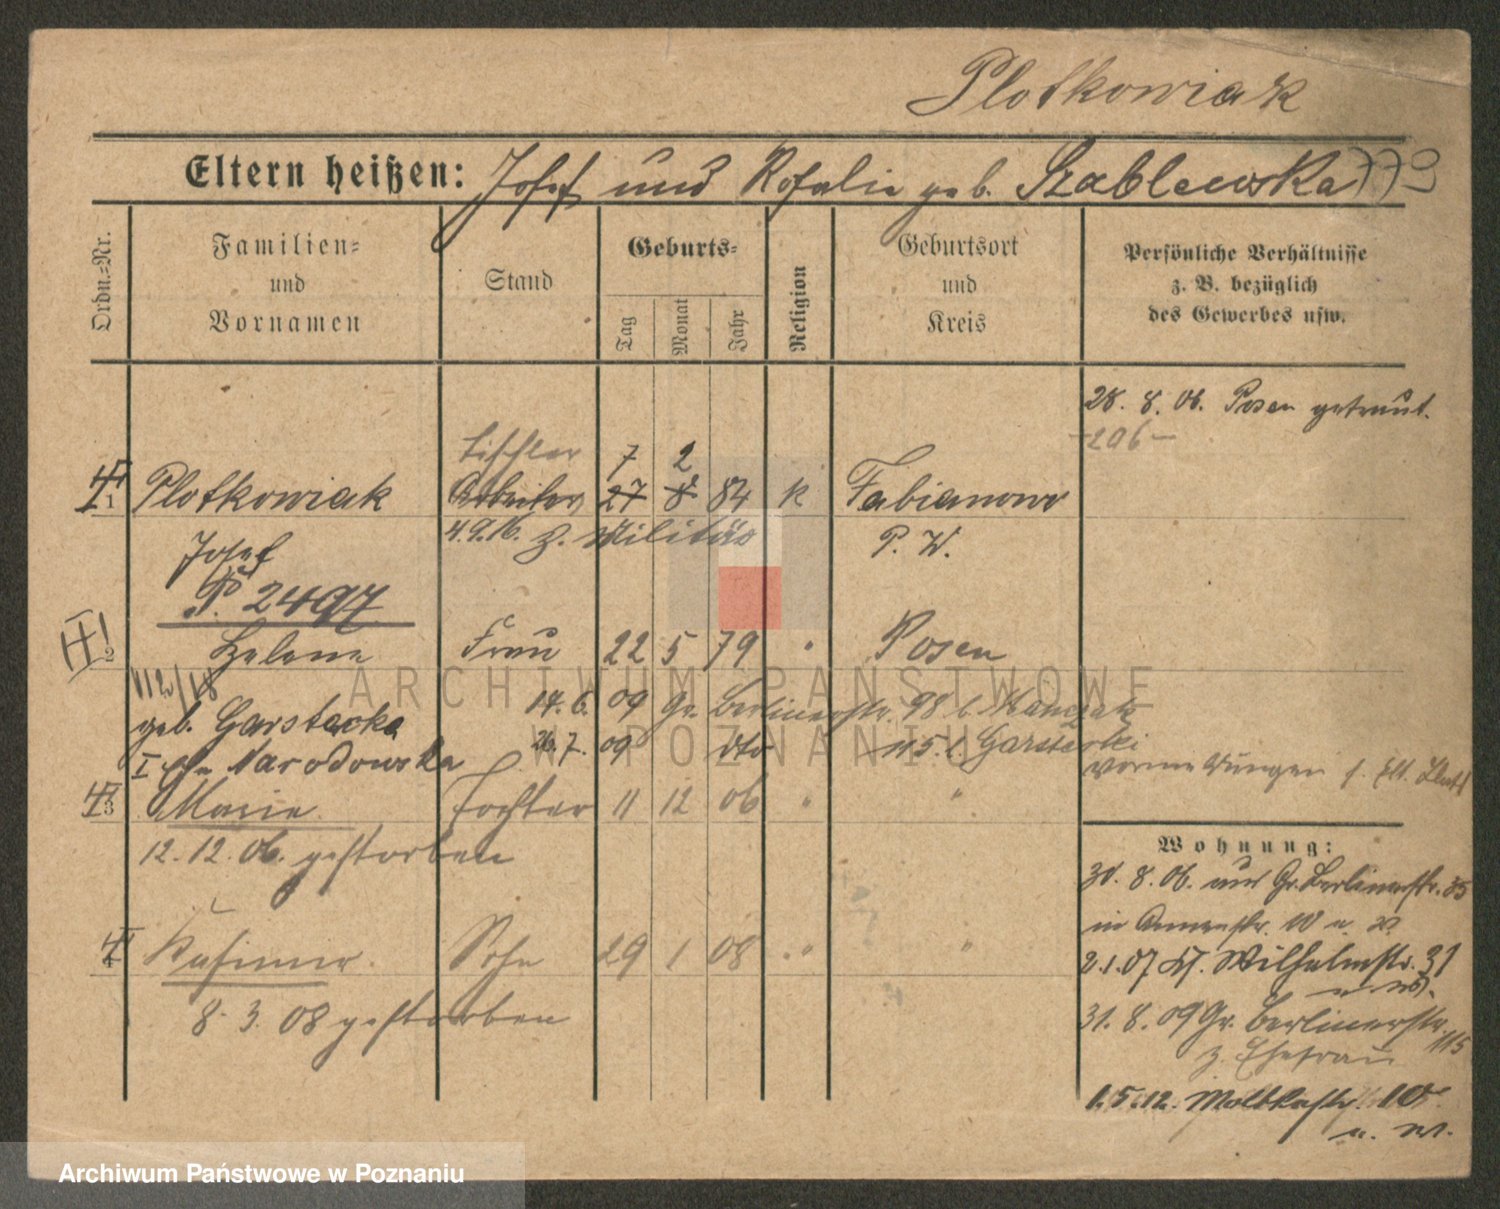 Plotkowiak
Eltern heißen: Josef und Rosalie geb. Szablewska 779
Ordn.=Nr.
Familien= und Vornamen
Stand
Geburts=
Tag
Monat
Jahr
Religion
Geburtsort und Kreis
Persönliche Verhältnisse
z. B. bezüglich
des Gewerbes usw.
28. 8. 06. Posen getraut.
-206-
Tischler 7 2
1 Plotkowiak Arbeiter 27 8 84 k Fabianowo
4.9.16. z. Militär P. W.
Josef
P. 2497
2 Helene Frau 22 5 79 " Posen
geb. Garstecka 14. 6. 09 Gr. Berlinerstr. 98 b.
I Narodowska 26. 7. 09 dto 115 b. Garstecki
3 Marie Tochter 11 12 06 " "
12. 12. 06. gestorben
4 Kasimir Sohn 29 1 08 " "
8. 3. 08 gestorben
Wohnung:
30. 8. 06. aus Gr. Berlinerstr. 35
in
2.1.07 Kl. Wilhelmstr. 31
31. 8. 09 Gr. Berlinerstr. 115
z. Ehefrau
1.5.12. Moltkestr. 10
ARCHIWUM PAŃSTWOWE
W POZNANIU
Archiwum Państwowe w Poznaniu